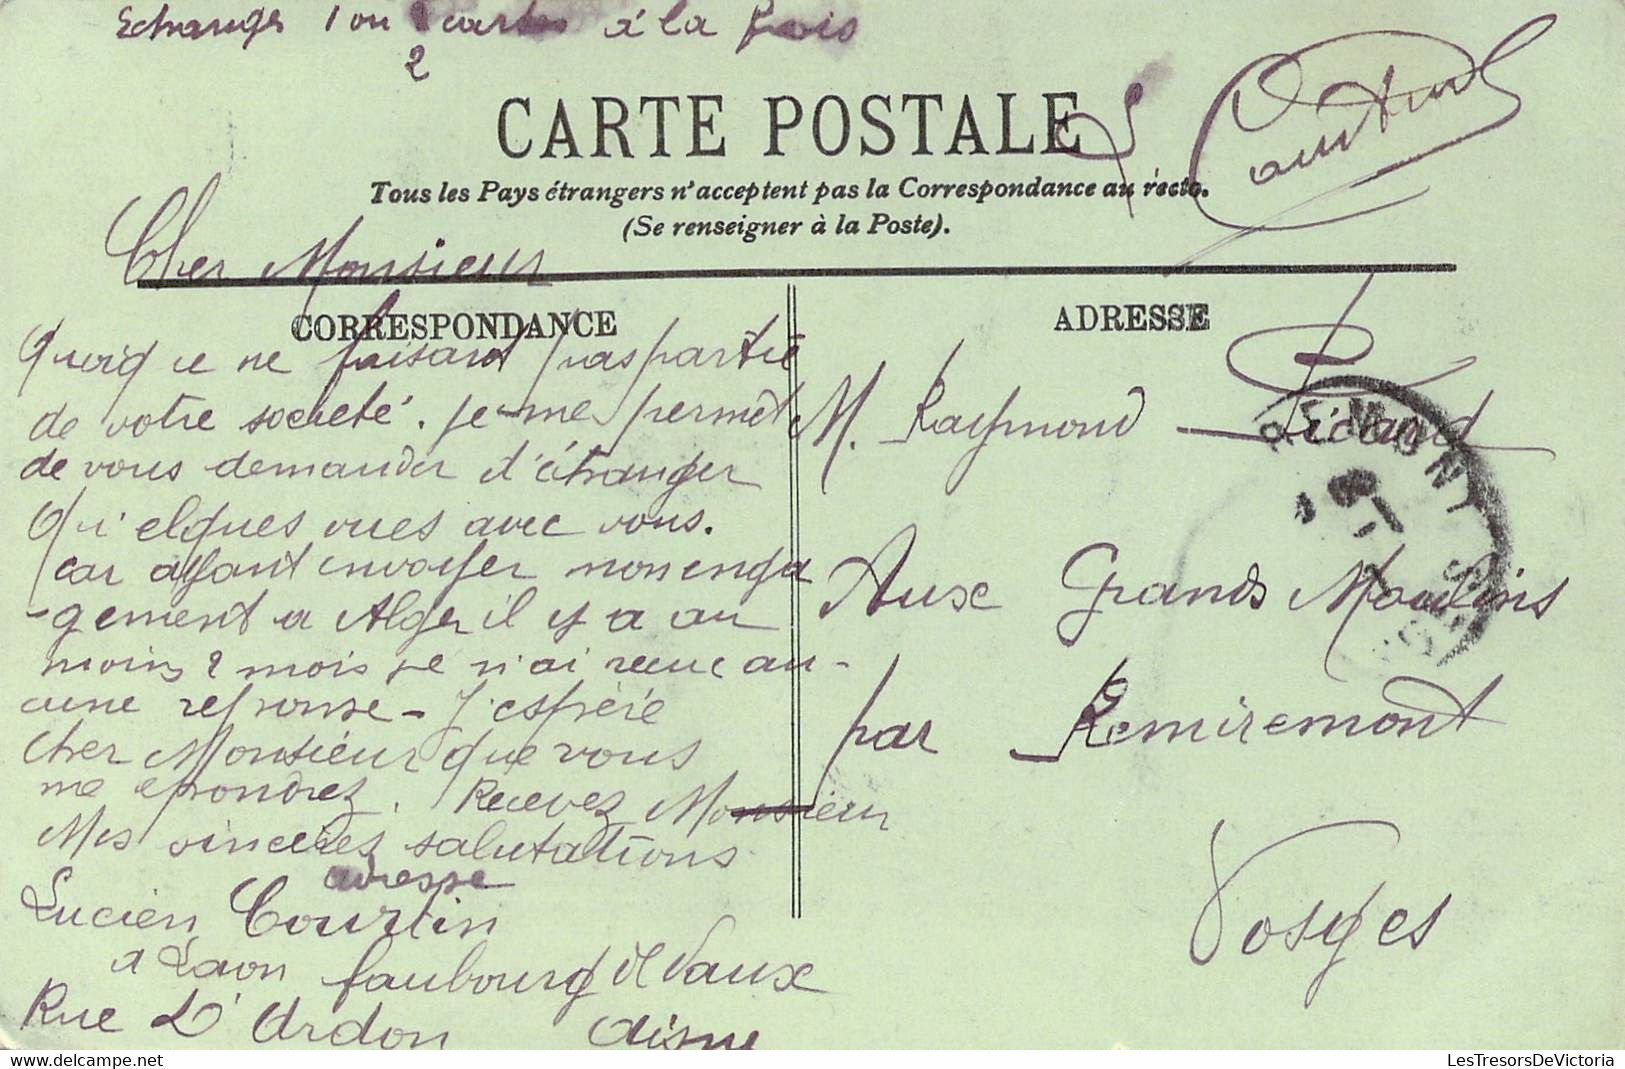 Echange 1 ou 2 cartes à la fois
CARTE POSTALE
L. Courtin
Tous les Pays étrangers n'acceptent pas la Correspondance au recto.
(Se renseigner à la Poste).
Cher Monsieur
CORRESPONDANCE
Quoiq ue ne faisant pas partie
de votre societé. je me permet
de vous demander d'échanger
Qu'elques vues avec vous.
car ayant envoyer mon enga
-gement a Alger il y a au
moins 2 mois je n'ai recue au-
cune reponse - J'espère
Cher Monsieur que vous
me epondrez. Recevez Monsieur
Mes sincères salutations
adresse
Lucien Courtin
a Laon faubourg de Vaux
Rue D'Ardon Aisne
ADRESSE
M. Raymond Pierard
Aux Grands Moulins
par Remiremont
Vosges
REMIREMONT
LesTresorsDeVictoria